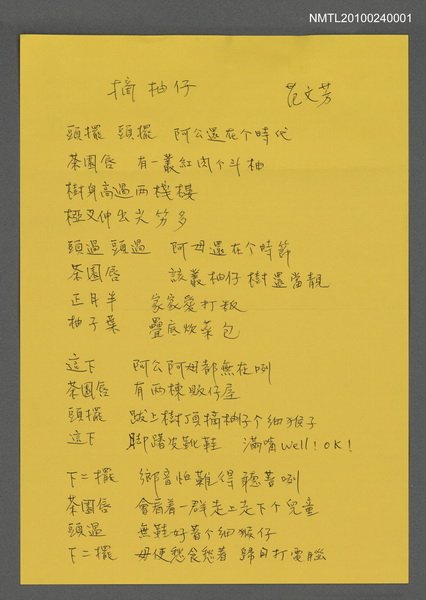 NMTL20100240001
摘柚仔
范文芳
頭擺 頭擺 阿公還在个時代
茶園唇 有一叢紅肉个斗柚
樹身高過兩棧樓
極叉伸出尖笏多
頭過 頭過 阿母還在个時節
茶園唇 該叢柚仔樹還當靚
正月半 家家愛打粄
柚子葉 疊底炊菜包
這下 阿公阿母都無在咧
茶園唇 有兩棟販仔屋
頭擺 跋上樹頂摘柚仔个細猴子
這下 腳踏皮靴鞋 滿嘴well!OK!
下二擺 鄉音怕難得聽著咧
茶園唇 會看著一群走上走下个兒童
頭過 無鞋好著个細猴仔
下二擺 毋使愁食愁著 歸日打電腦